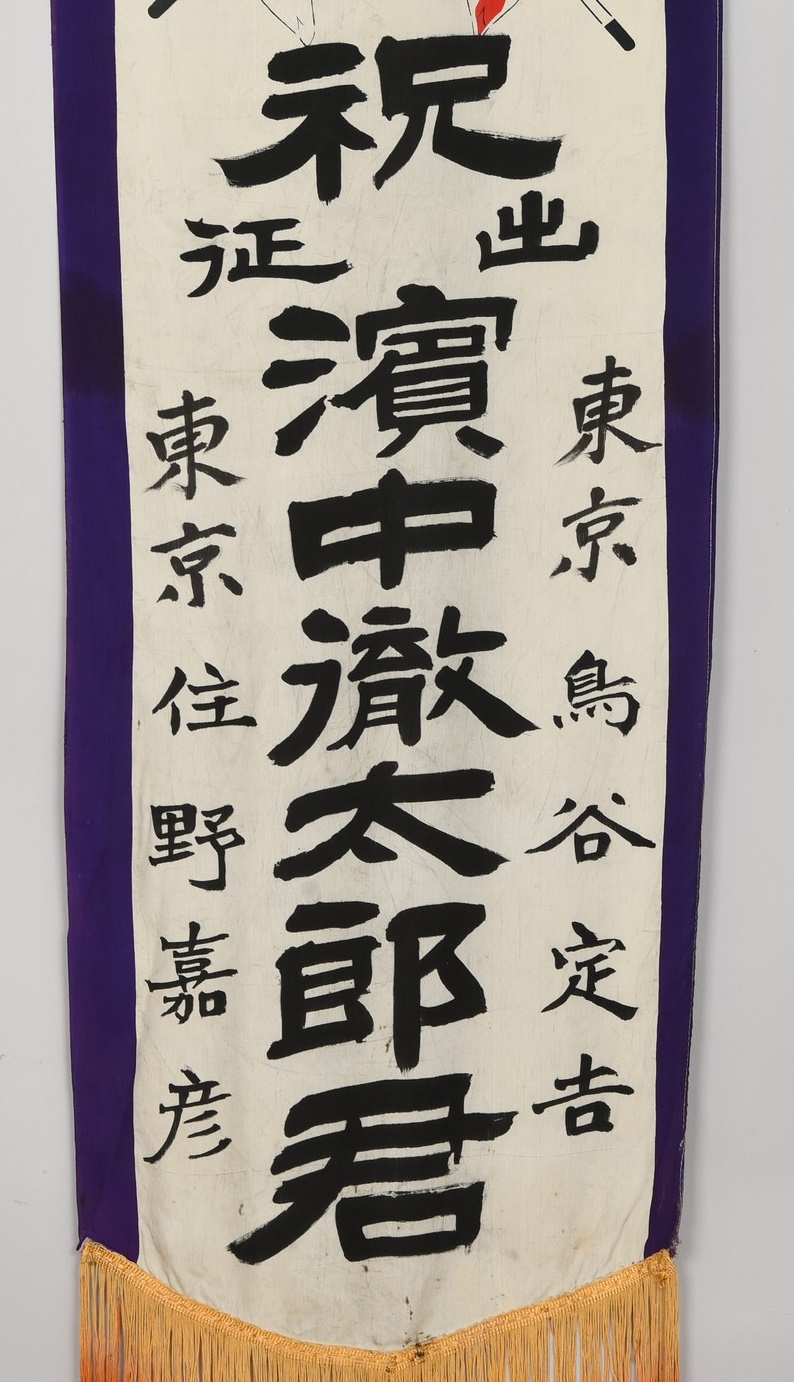 祝
出征
濱中徹太郎君
東京 鳥谷定吉
東京 住野嘉彦